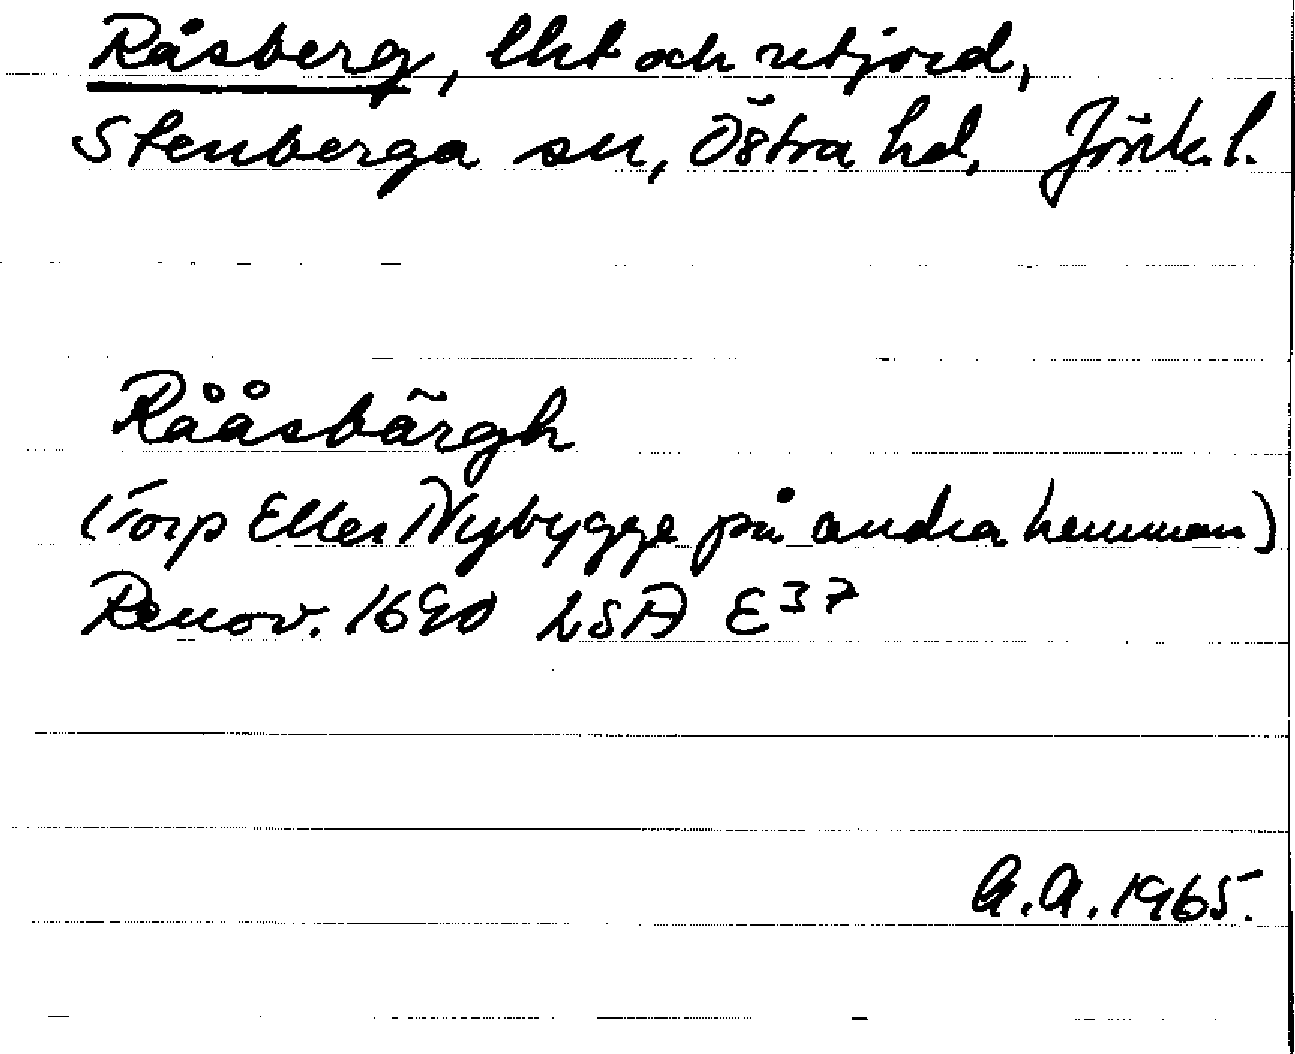 Råsberg, lht och utjord,
Stenberga sn, Östra hd, Jönk. l.
Rååsbärgh
(Torp Eller Nybygge på andra hemman)
Renov. 1690 LSA E37
A.A. 1965.